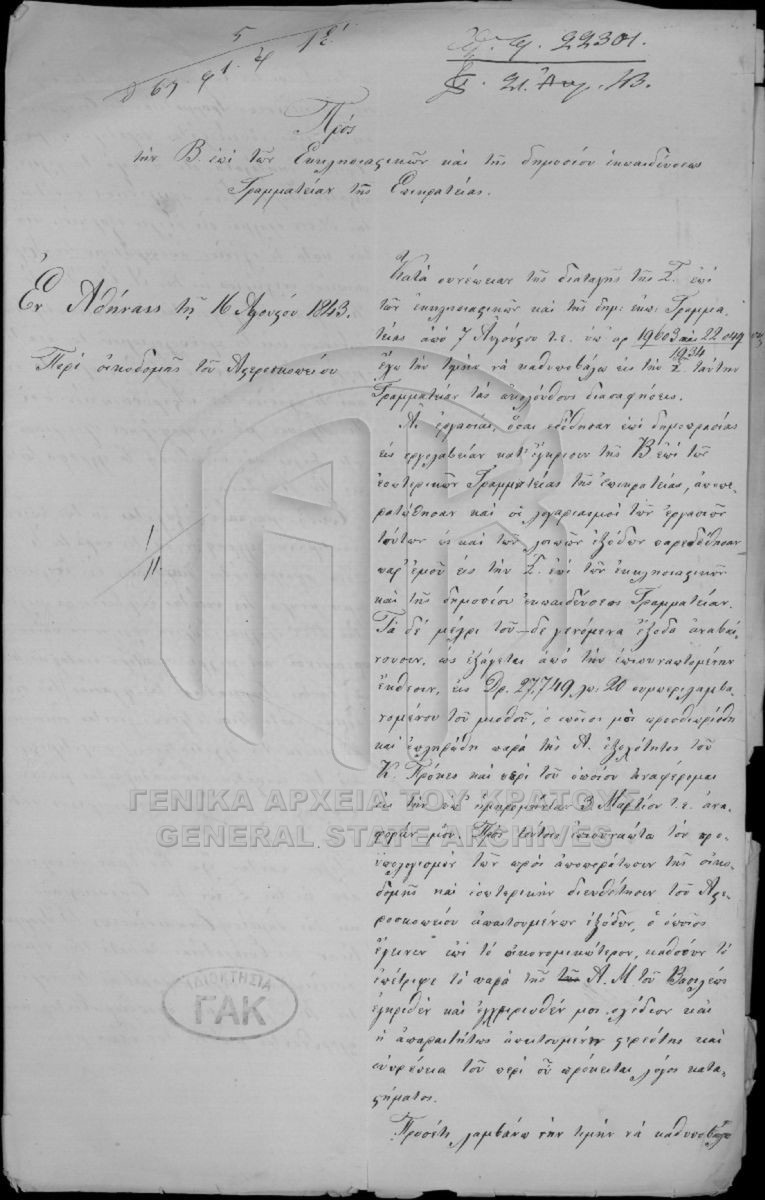 5
18'
22301.
21. Αυγ. /43.
Πρός
τὴν Β. ἐπὶ τῶν Ἐκκλησιαστικῶν καὶ τῆς δημοσίου ἐκπαιδεύσεως
Γραμματείαν τῆς Ἐπικρατείας.
Ἐν Ἀθήναις τῇ 16 Αὐγούστου 1843.
Περὶ οἰκοδομῆς τοῦ Ἀστεροσκοπείου
1/11.
Κατὰ συνέπειαν τῆς διαταγῆς τῆς Σ. ἐπὶ
τῶν ἐκκλησιαστικῶν καὶ τῆς δημ: ἐκπ: Γραμμα-
τείας ἀπὸ 7 Αὐγούστου τ.ε. ὑπ' αρ 19603 και 22 044
1934
ἔχω τὴν τιμὴν νὰ καθυποβάλω εἰς τὴν Σ. ταύτην
Γραμματείαν τὰς ἀκολούθους διασαφήσεις.
Αἱ ἐργασίαι, ὅσαι ἐδόθησαν ἐπὶ δημοπρασίας
εἰς ἐργολαβείαν κατ' ἔγκρισιν τῆς Β. ἐπὶ τῶν
ἐσωτερικῶν Γραμματείας τῆς ἐπικρατείας, ἀπεπε-
ρατώθησαν καὶ οἱ λογαριασμοὶ τῶν ἐργασιῶν
τούτων ὡς καὶ τῶν λοιπῶν ἐξόδων παρεδόθησαν
παρ' ἐμοῦ εἰς τὴν Σ. ἐπὶ τῶν ἐκκλησιαστικῶν
καὶ τῆς δημοσίου ἐκπαιδεύσεως Γραμματείαν.
Τὰ δὲ μέχρι τοῦ-δε γενόμενα ἔξοδα ἀναβαί-
νουσιν, ὡς ἐξάγεται ἀπὸ τὴν ἐπισυναπτομένην
ἔκθεσιν, εἰς Δρ. 27,749 λπ: 20 συμπεριλαμβα-
νομένου τοῦ μισθοῦ, ὁ ὁποῖος μοὶ προσδιωρίσθη
καὶ ἐπληρώθη παρὰ τῆς Α. ἐξοχότητος τοῦ
Κ. Πρόκες καὶ περὶ τοῦ ὁποίου ἀναφέρομαι
εἰς τὴν ὑπ' ἡμερομηνίαν 3 Μαρτίου τ.ε. ἀνα-
φοράν μου. Πρὸς τούτοις ἐπισυνάπτω τὸν προ-
ϋπολογισμὸν τῶν πρὸς ἀποπεράτωσιν τῆς οἰκο-
δομῆς καὶ ἐσωτερικὴν διευθέτησιν τοῦ Ἀστε-
ροσκοπείου ἀπαιτουμένων ἐξόδων, ὁ ὁποῖος
ἔγεινεν ἐπὶ τὸ οἰκονομικώτερον, καθόσον τὸ
ἐπέτρεψε τὸ παρὰ τῆς Α. Μ. τοῦ Βασιλέως
ἐγκριθὲν καὶ ἐγχειρισθέν μοι σχέδιον καὶ
ἡ ἀπαραιτήτως ἀπαιτουμένη στερεότης καὶ
εὐπρέπεια τοῦ περὶ οὗ πρόκειται λόγος κατα-
στήματος.
Προσέτι λαμβάνω τὴν τιμὴν νὰ καθυποβάλω
ΓΕΝΙΚΑ ΑΡΧΕΙΑ ΤΟΥ ΚΡΑΤΟΥΣ
GENERAL STATE ARCHIVES
ΙΔΙΟΚΤΗΣΙΑ
ΓΑΚ